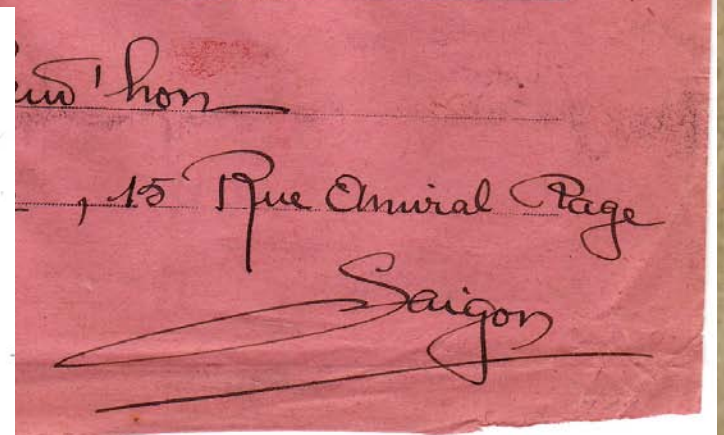 , 15 Rue Amiral Page
Saigon